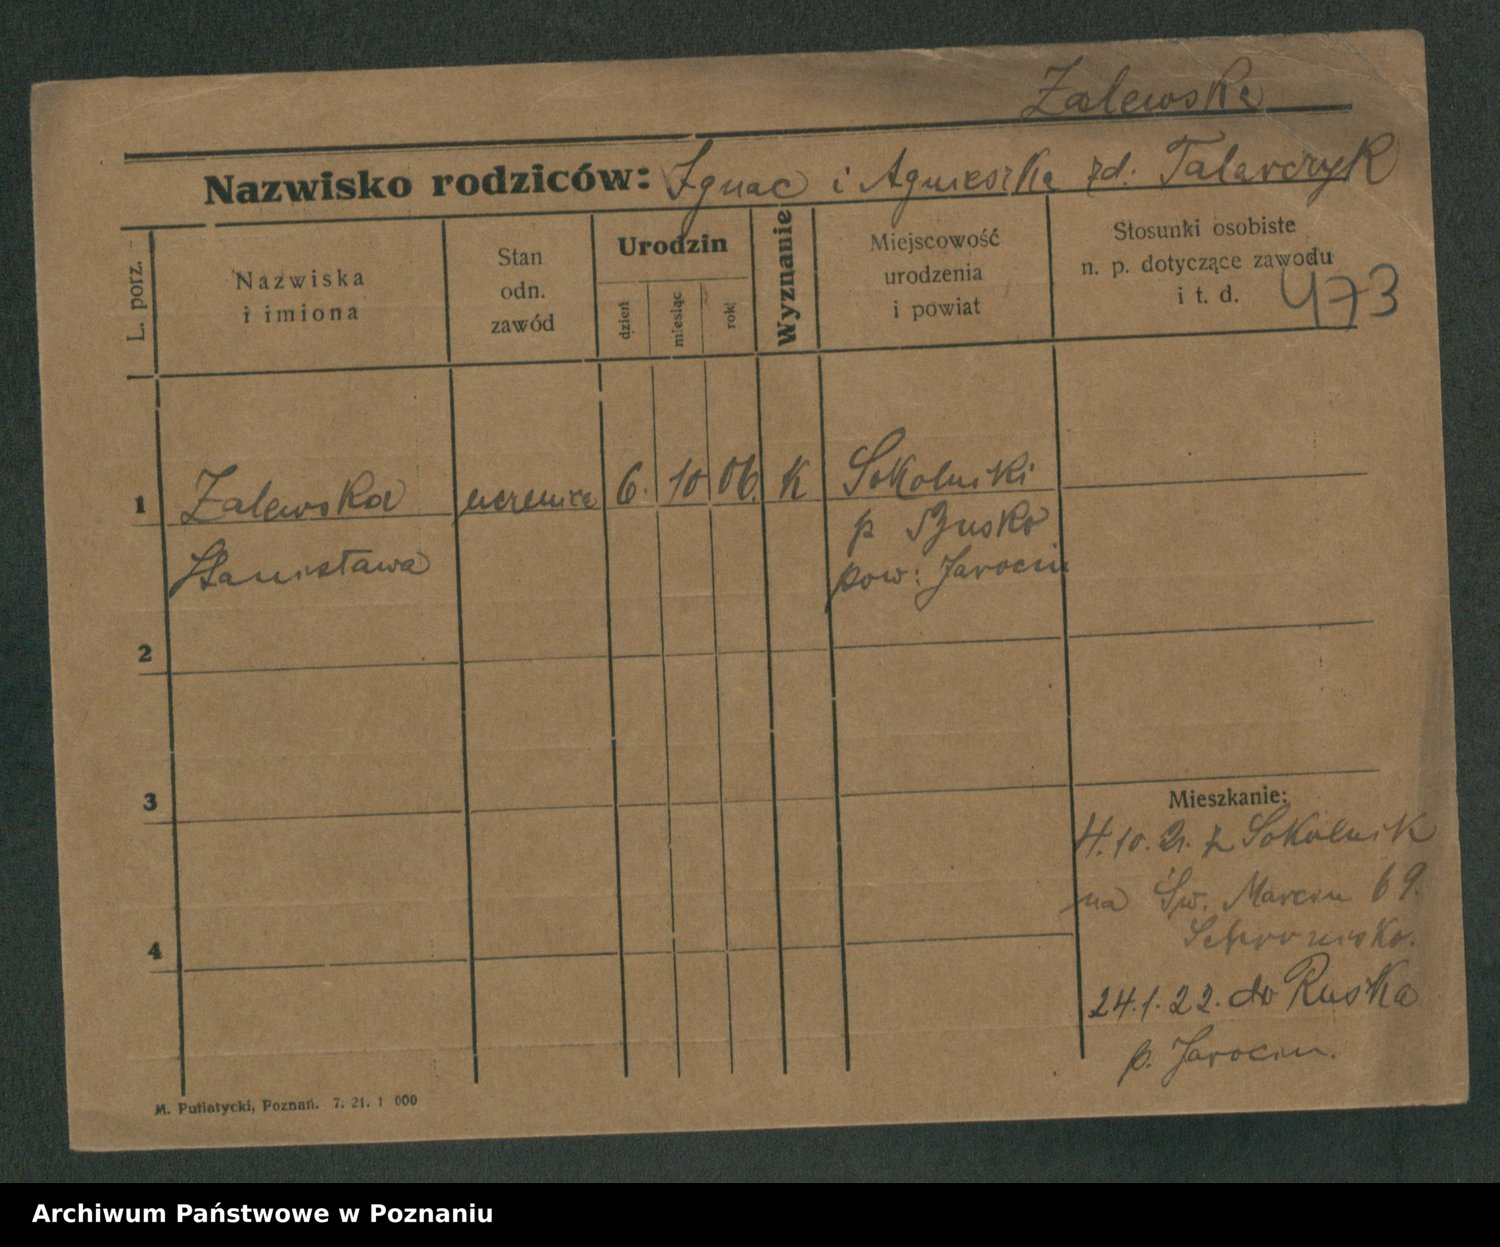 Zalewska
Nazwisko rodziców: Ignac i Agnieszka zd. Talarczyk
L. porz.
Nazwiska
i imiona
Stan
odn.
zawód
Urodzin
dzień
miesiąc
rok
Wyznanie
Miejscowość
urodzenia
i powiat
Stosunki osobiste
n. p. dotyczące zawodu
i t. d.
473
1 Zalewska uczenica 6. 10 06. K Sokolniki
Stanisława
p
pow: Jarocin
2
3
4
Mieszkanie:
4.10.21. z Sokolnik
na Św. Marcin 69.
24.1.22. do Ruska
p. Jarocin.
M. Putiatycki, Poznań. 7. 21. 1 000
Archiwum Państwowe w Poznaniu